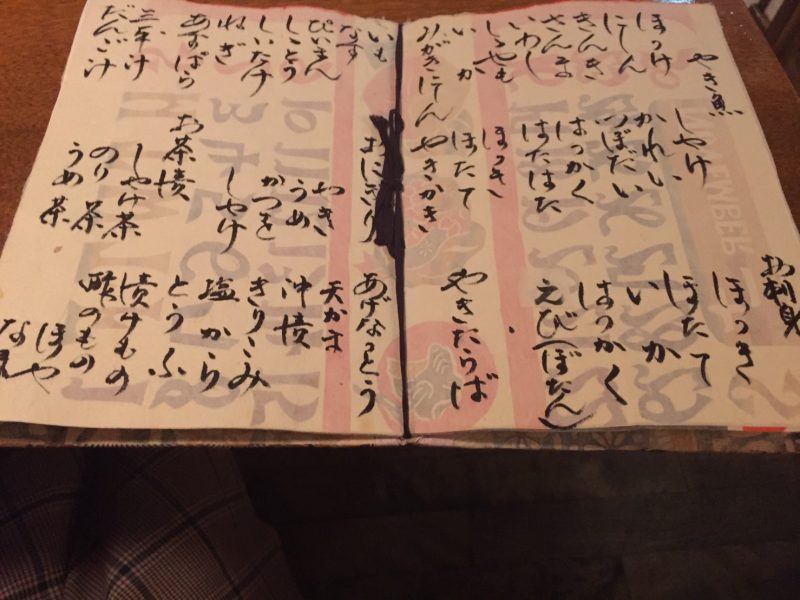 やき魚
ほっけ
にしん
きんき
さんま
いわし
ししゃも
いか
みがきにしん
しゃけ
かれい
つぼだい
はっかく
はたはた
ほっき
ほたて
やきかき
お刺身
ほっき
ほたて
いか
はっかく
えび(ぼたん)
やきたらば
いも
なす
ぴいまん
ししとう
しいたけ
ねぎ
あすぱら
三平汁
だんご汁
おにぎり
やき
うめ
かつを
しゃけ
お茶漬
しゃけ茶
のり茶
うめ茶
あげなっとう
天かま
沖漬
きりこみ
塩から
とうふ
漬けもの
酢のもの
ほや